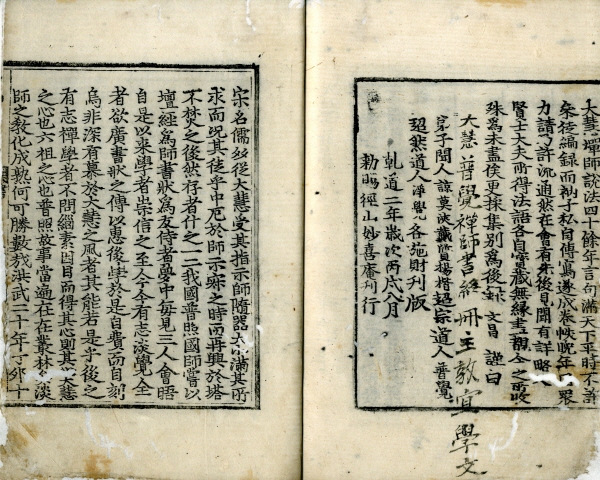 大慧禪師說法四十餘年言句滿天下平時不許
參徒編錄而衲子私自傳寫遂成卷帙晚年因衆
力請乃許流通然在會有先後見聞有詳略
賢士大夫所得法語各自寶藏無緣盡觀今之所收
殊爲未盡俟更採集別爲後錄 文昌 謹白
大慧普覺禪師書終 冊主敎宣學文
弟子閩人 黃 楊楷超宗道人普覺
超然道人淨覺各施財刊版
乾道二年歲次丙戌八月
勅賜徑山妙喜庵刊行
宋名儒多從大慧受其指示師隨器大小滿其所
求而況其徒乎中厄於師示寂之時而再興於塔
不焚之後然存者什之一二我國普照國師嘗以
壇經爲師書狀爲友侍者夢中每見三人會晤
自是以來學者崇信之至今今有志淡覺全
者欲廣書狀之傳以惠後學於是自費而自刻
焉非深有慕於大慧之風者其能若是乎後之
有志禪學者不問緇素因目而得其心則其大慧
之心也六祖之心也普照故事當遍在在叢林志淡
師之教化成熟何可勝數哉洪武二十年丁卯十